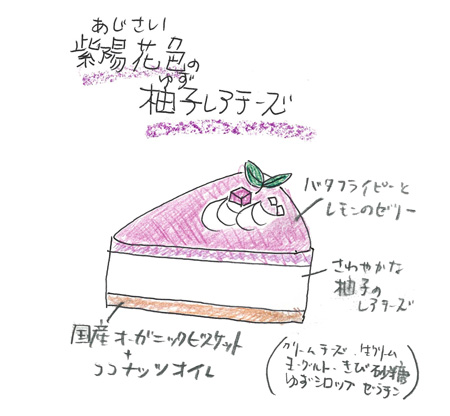 あじさい
紫陽花色の
ゆず
柚子レアチーズ
バタフライピーと
レモンのゼリー
さわやかな
柚子の
レアチーズ
国産オーガニックビスケット
+
ココナッツオイル
(クリームチーズ・生クリーム
ヨーグルト・きび砂糖
ゆずシロップ ゼラチン)